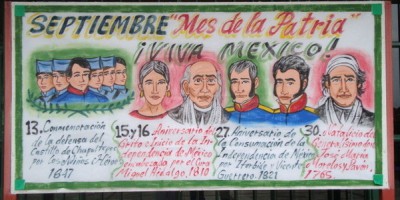 SEPTIEMBRE "Mes de la Patria"
¡VIVA MEXICO!
13. Conmemoración
de la defensa del
Castillo de Chapultepec
por los Niños Héroes
1847
15 y 16. Aniversario del
Grito e Inicio de la In-
dependencia de México
por el Cura
Miguel Hidalgo, 1810
27. Aniversario de
la Consumación de la
Independencia de México
por Iturbide y Vicente
Guerrero. 1821
30. Natalicio de
José María
Morelos y Pavón.
1765